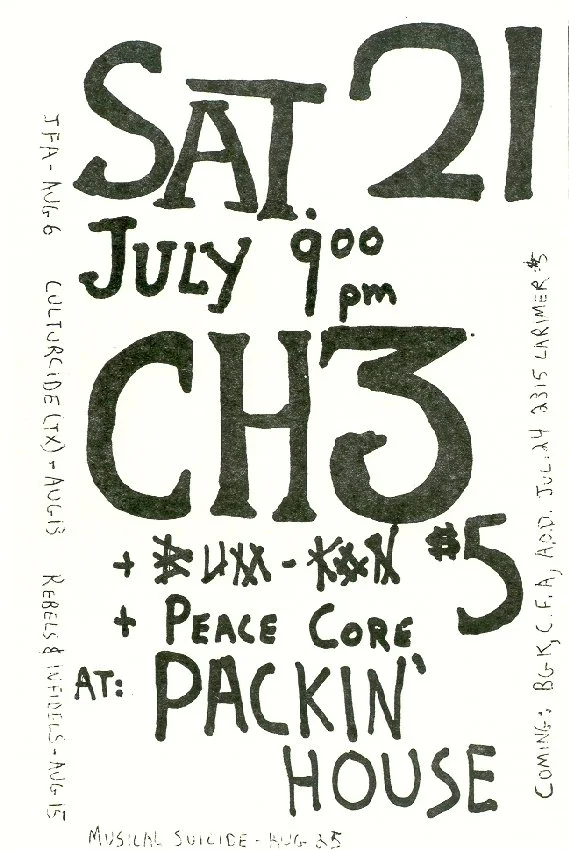 SAT. 21
JULY 900 pm
CH3
+ BUM-KON $5
+ PEACE CORE
AT: PACKIN'
HOUSE
JFA - AUG 6 CULTURCIDE (TX) - AUG 13 REBELS & INFIDELS - AUG 15
MUSICAL SUICIDE - AUG 25
COMING: BGK, C.F.A, A.O.D. JUL. 24 2315 LARIMER $5